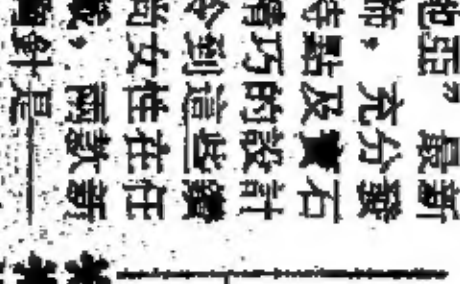 亞，最新
飾，充分發
等點及寶石
精巧的設計
令到這些鑽
尚女性在任
兩款新
針是